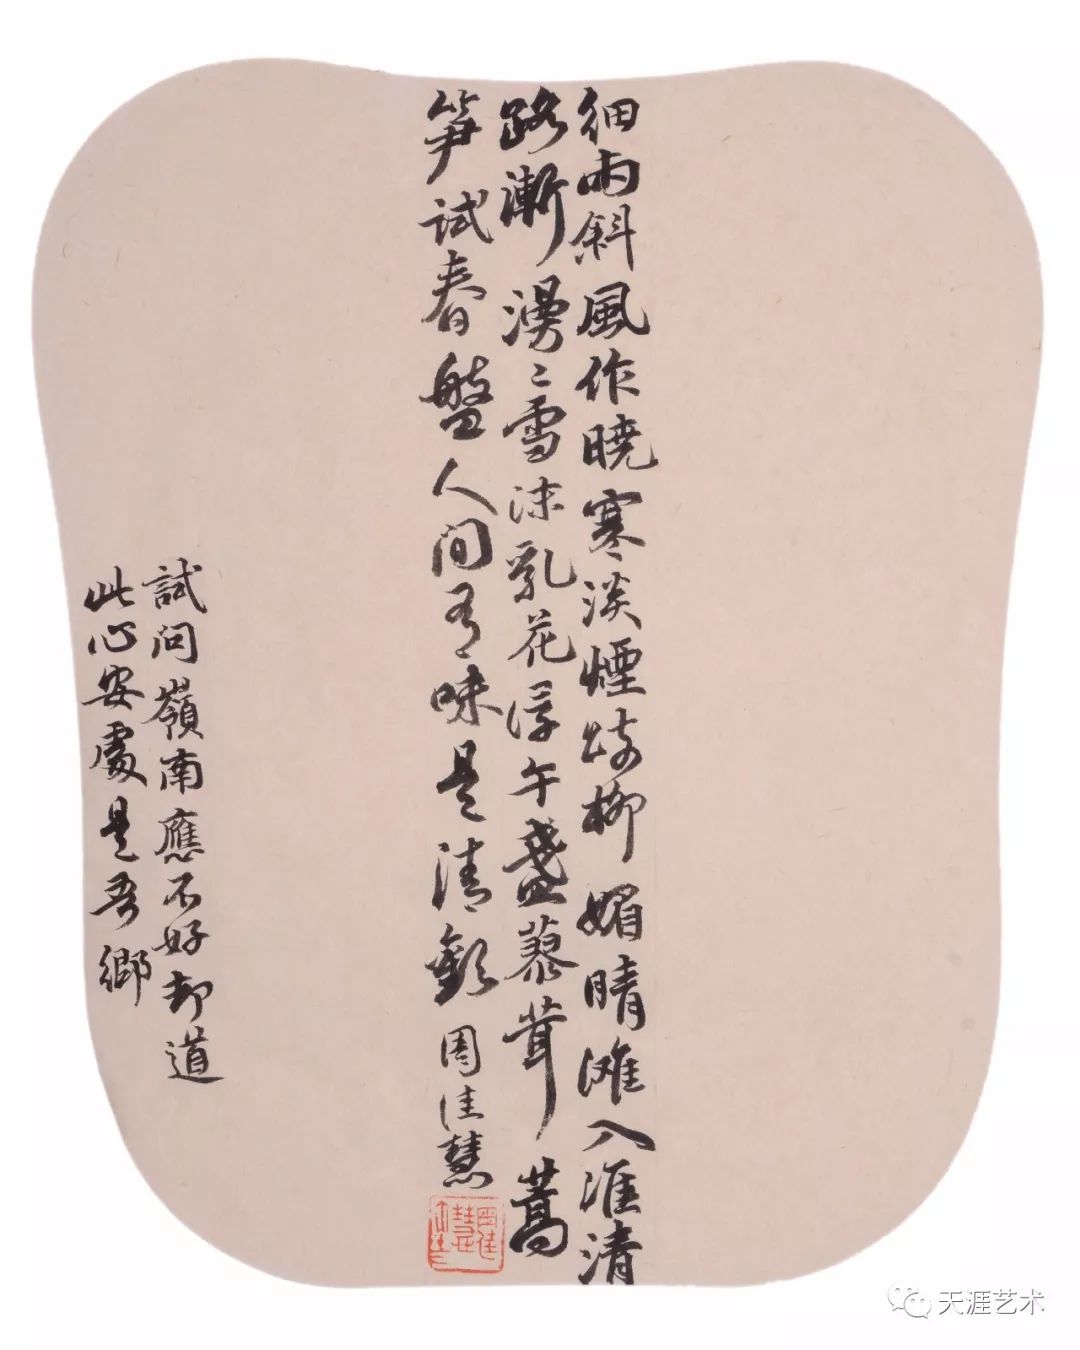 細雨斜風作曉寒淡煙疎柳媚晴滩入淮清
路漸漫〻雪沫乳花浮午盞蓼茸蒿
笋試春盤人间有味是清歡 周佳慧
試问嶺南應不好却道
此心安處是吾鄉
天涯艺术